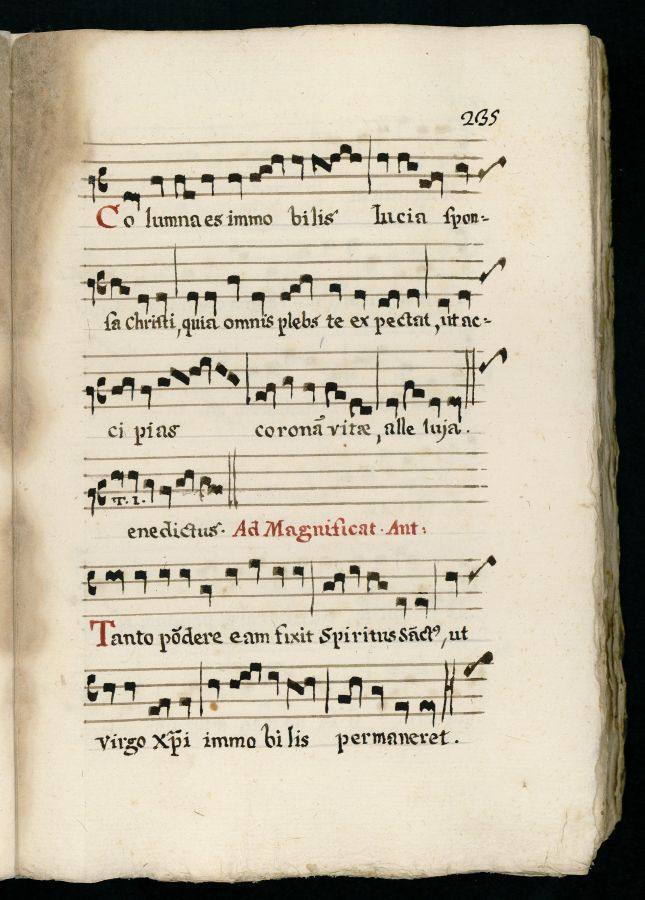 235
Co lumna es immo bi lis Lucia spon-
sa Christi, quia omnis plebs te ex pectat, ut ac-
ci pias coronā vitæ, alle luja.
T. I.
enedictus. Ad Magnificat. Ant:
Tanto põdere eam fixit Spiritus Sāct9, ut
virgo Xp̄i immo bi lis permaneret.